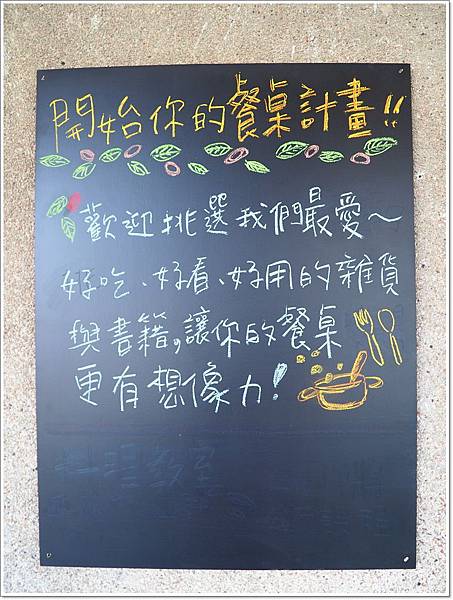 開始你的餐桌計畫!!
歡迎挑選我們最愛～
好吃、好看、好用的雜貨
與書籍，讓你的餐桌
更有想像力！
料理教室